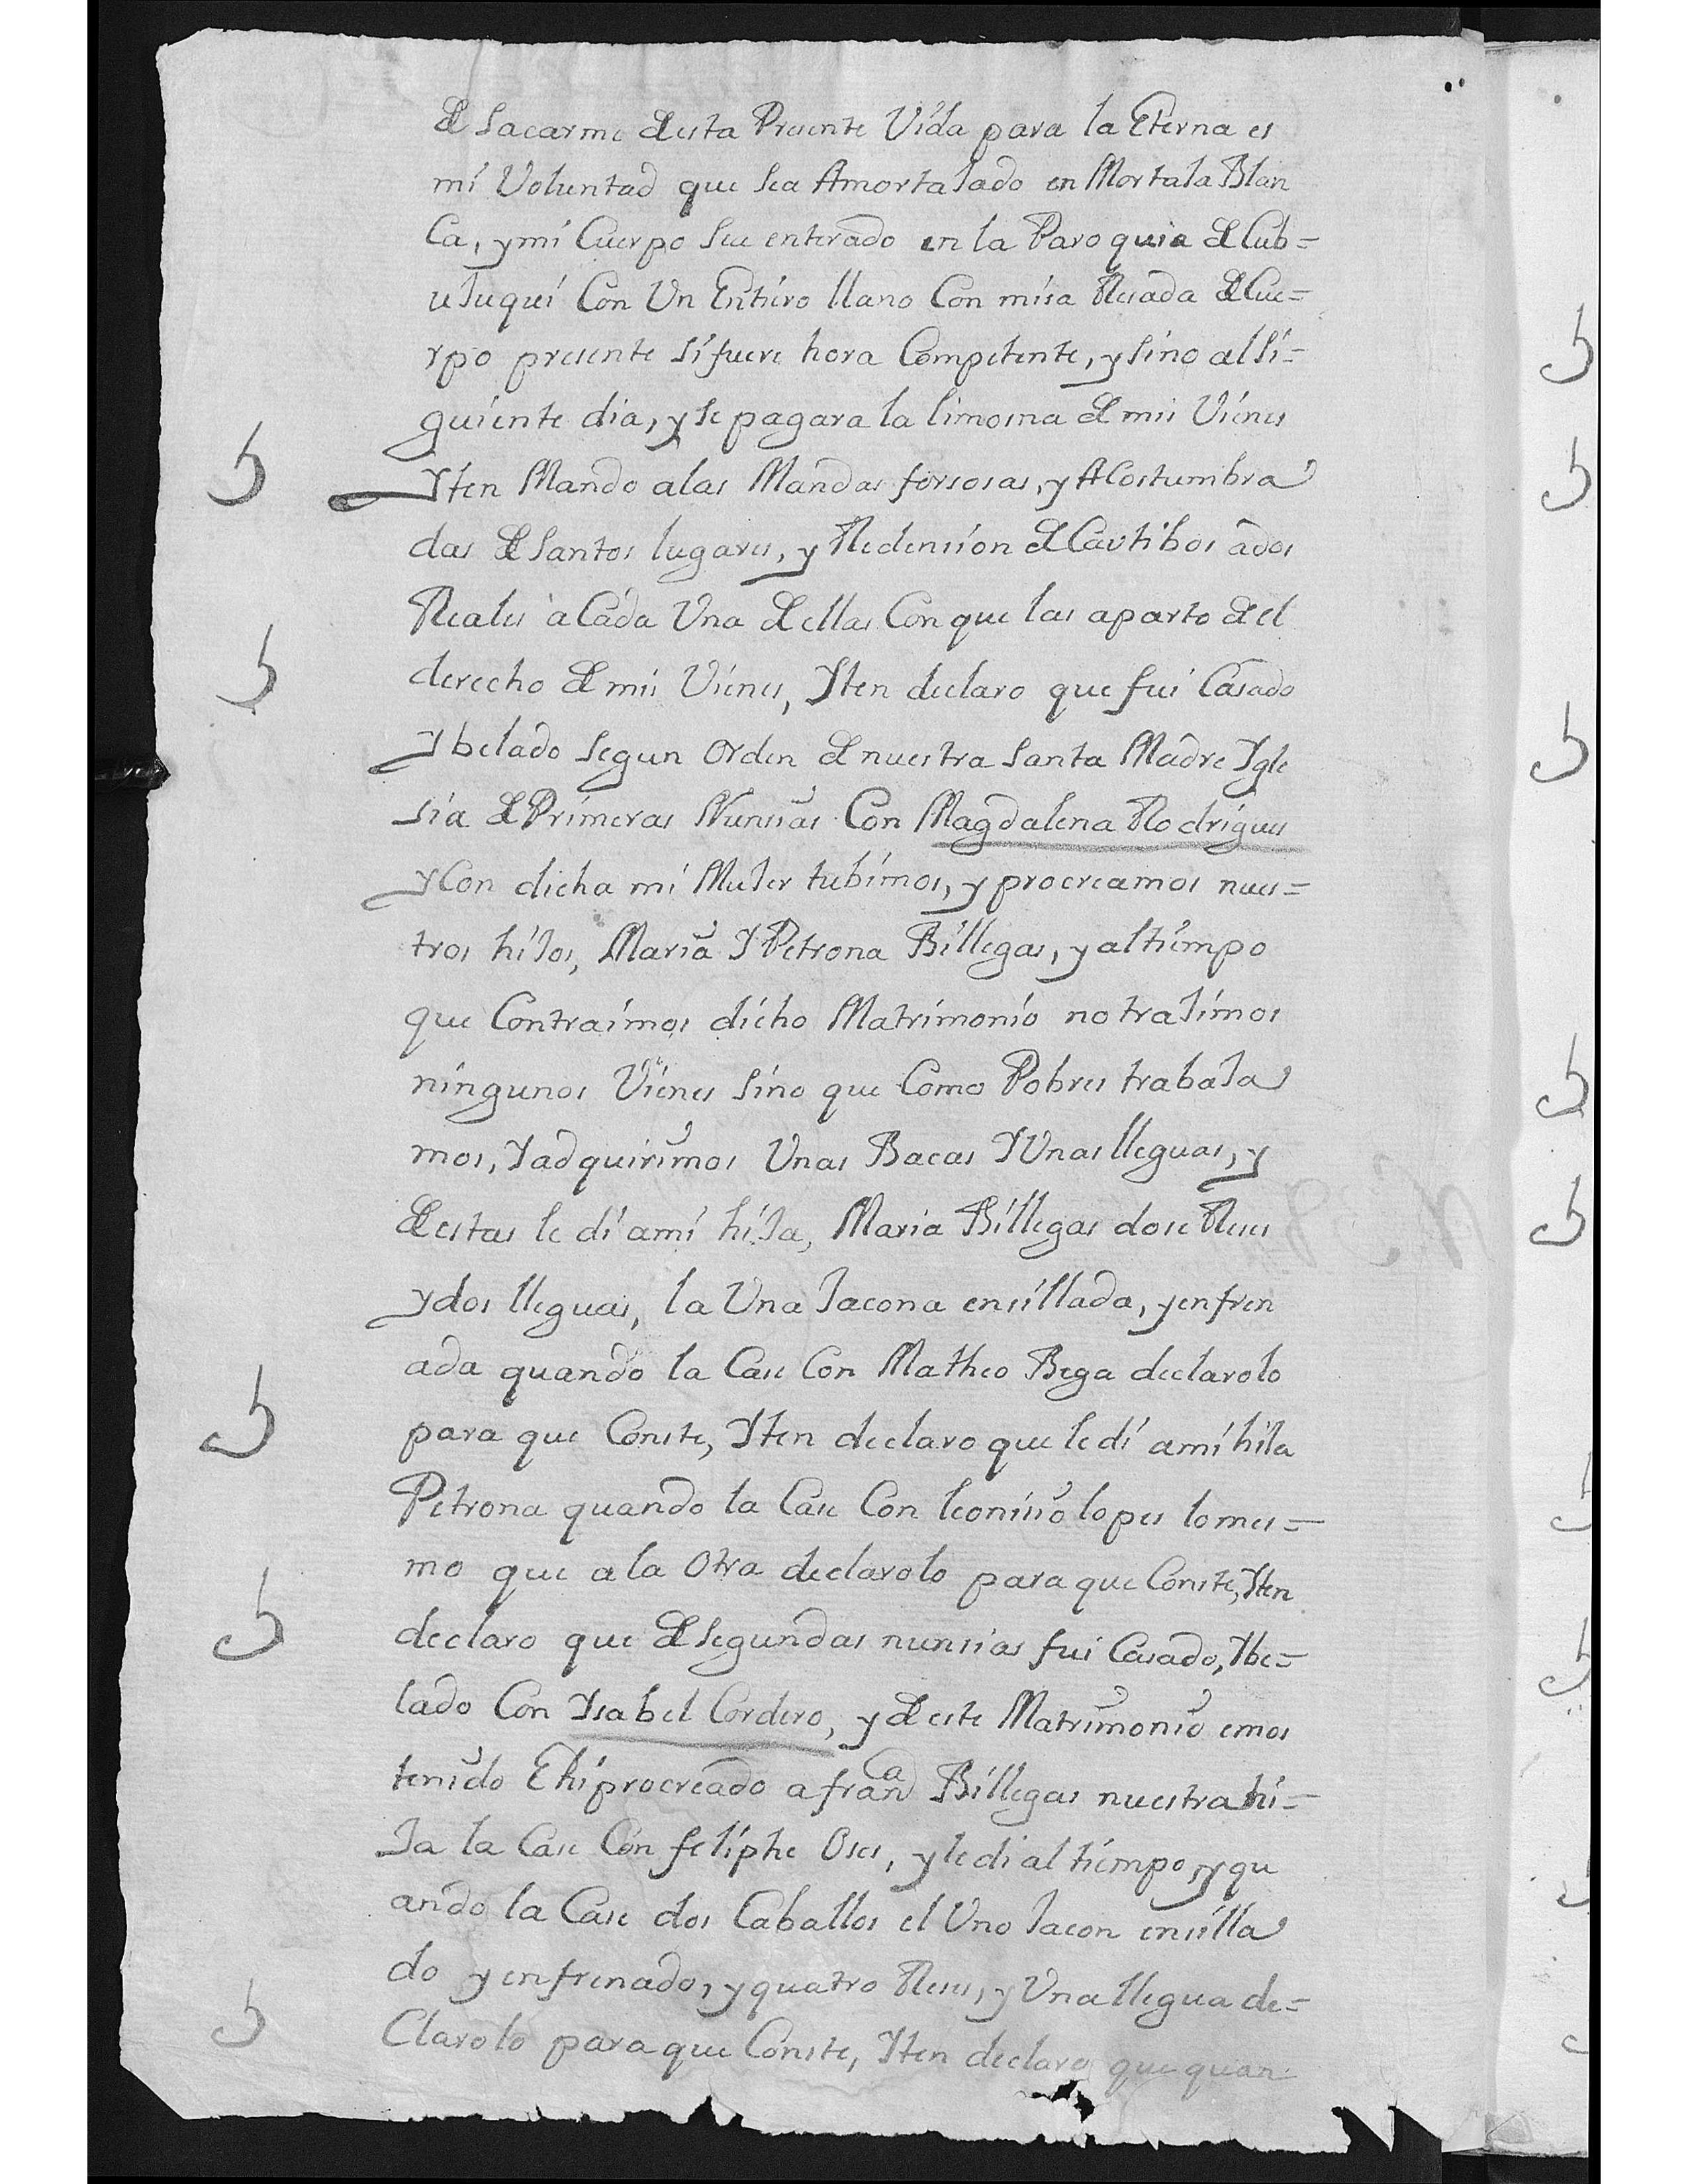 de Sacarme desta Presente Vida para la Eterna es
mi Voluntad que sea Amortajado en Mortaja Blan
Ca, y mi Cuerpo sea enterado en la Paroquia de Cub=
ujuqui Con Un Entiero llano Con misa Resada de Cue=
rpo presente si fuere hora Competente, y sino al si=
guiente dia, y se pagara la limosna de mis Vienes
Yten Mando a las Mandas forsosas, y ACostumbra
das de Santos lugares, y Redension de Cautibos a dos
Reales a Cada Una de ellas Con que las aparto de el
derecho de mis Vienes, Yten declaro que fui Casado
Y belado segun Orden de nuestra Santa Madre Ygle
sia de Primeras Nunsias Con Magdalena Rodrigues
y Con dicha mi Mujer tubimos, y procreamos nues=
tros hijos, Maria Y Petrona Billegas, y al tiempo
que Contraimos dicho Matrimonio no trajimos
ningunos Vienes sino que Como Pobres trabaja
mos, Y adquirimos Unas Bacas Y Unas lleguas, y
de estas le di a mi hija, Maria Billegas dose Reses
y dos lleguas, la Una Jacona ensillada, y enfren
ada quando la Case Con Matheo Bega declarolo
para que Conste, Yten declaro que le di a mi hija
Petrona quando la Case Con leonisio lopes lo mes=
mo que a la Otra declarolo para que Conste, Yten
declaro que de segundas nunsias fui Casado, Y be=
lado Con Ysabel Cordero, y de este Matrimonio emos
tenido E hi procreado a fran ca Billegas nuestra hi=
ja la Case Con feliphe Oses, y le di al tiempo, y qu
ando la Case dos Caballos el Uno Jacon ensilla
do y enfrenado, y quatro Reses, y Una llegua de=
Clarolo para que Conste, Yten declaro que quan